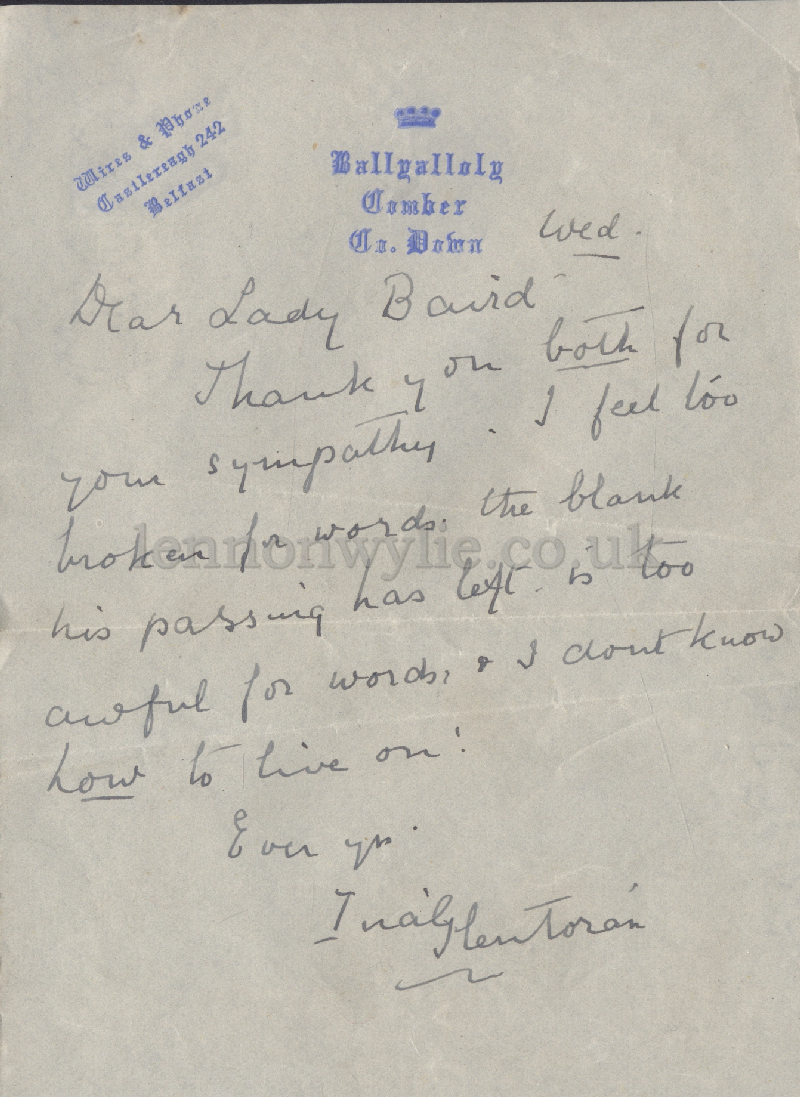 Wires & Phone
Castlereagh 242
Belfast
Ballyalloly
Comber
Co. Down
Wed.
Dear Lady Baird
Thank you both for
your sympathy. I feel too
broken for words. the blank
lennonwylie.co.uk
his passing has left. is too
awful for words, & I dont know
how to live on!
Ever yrs.
Ina Glentoran